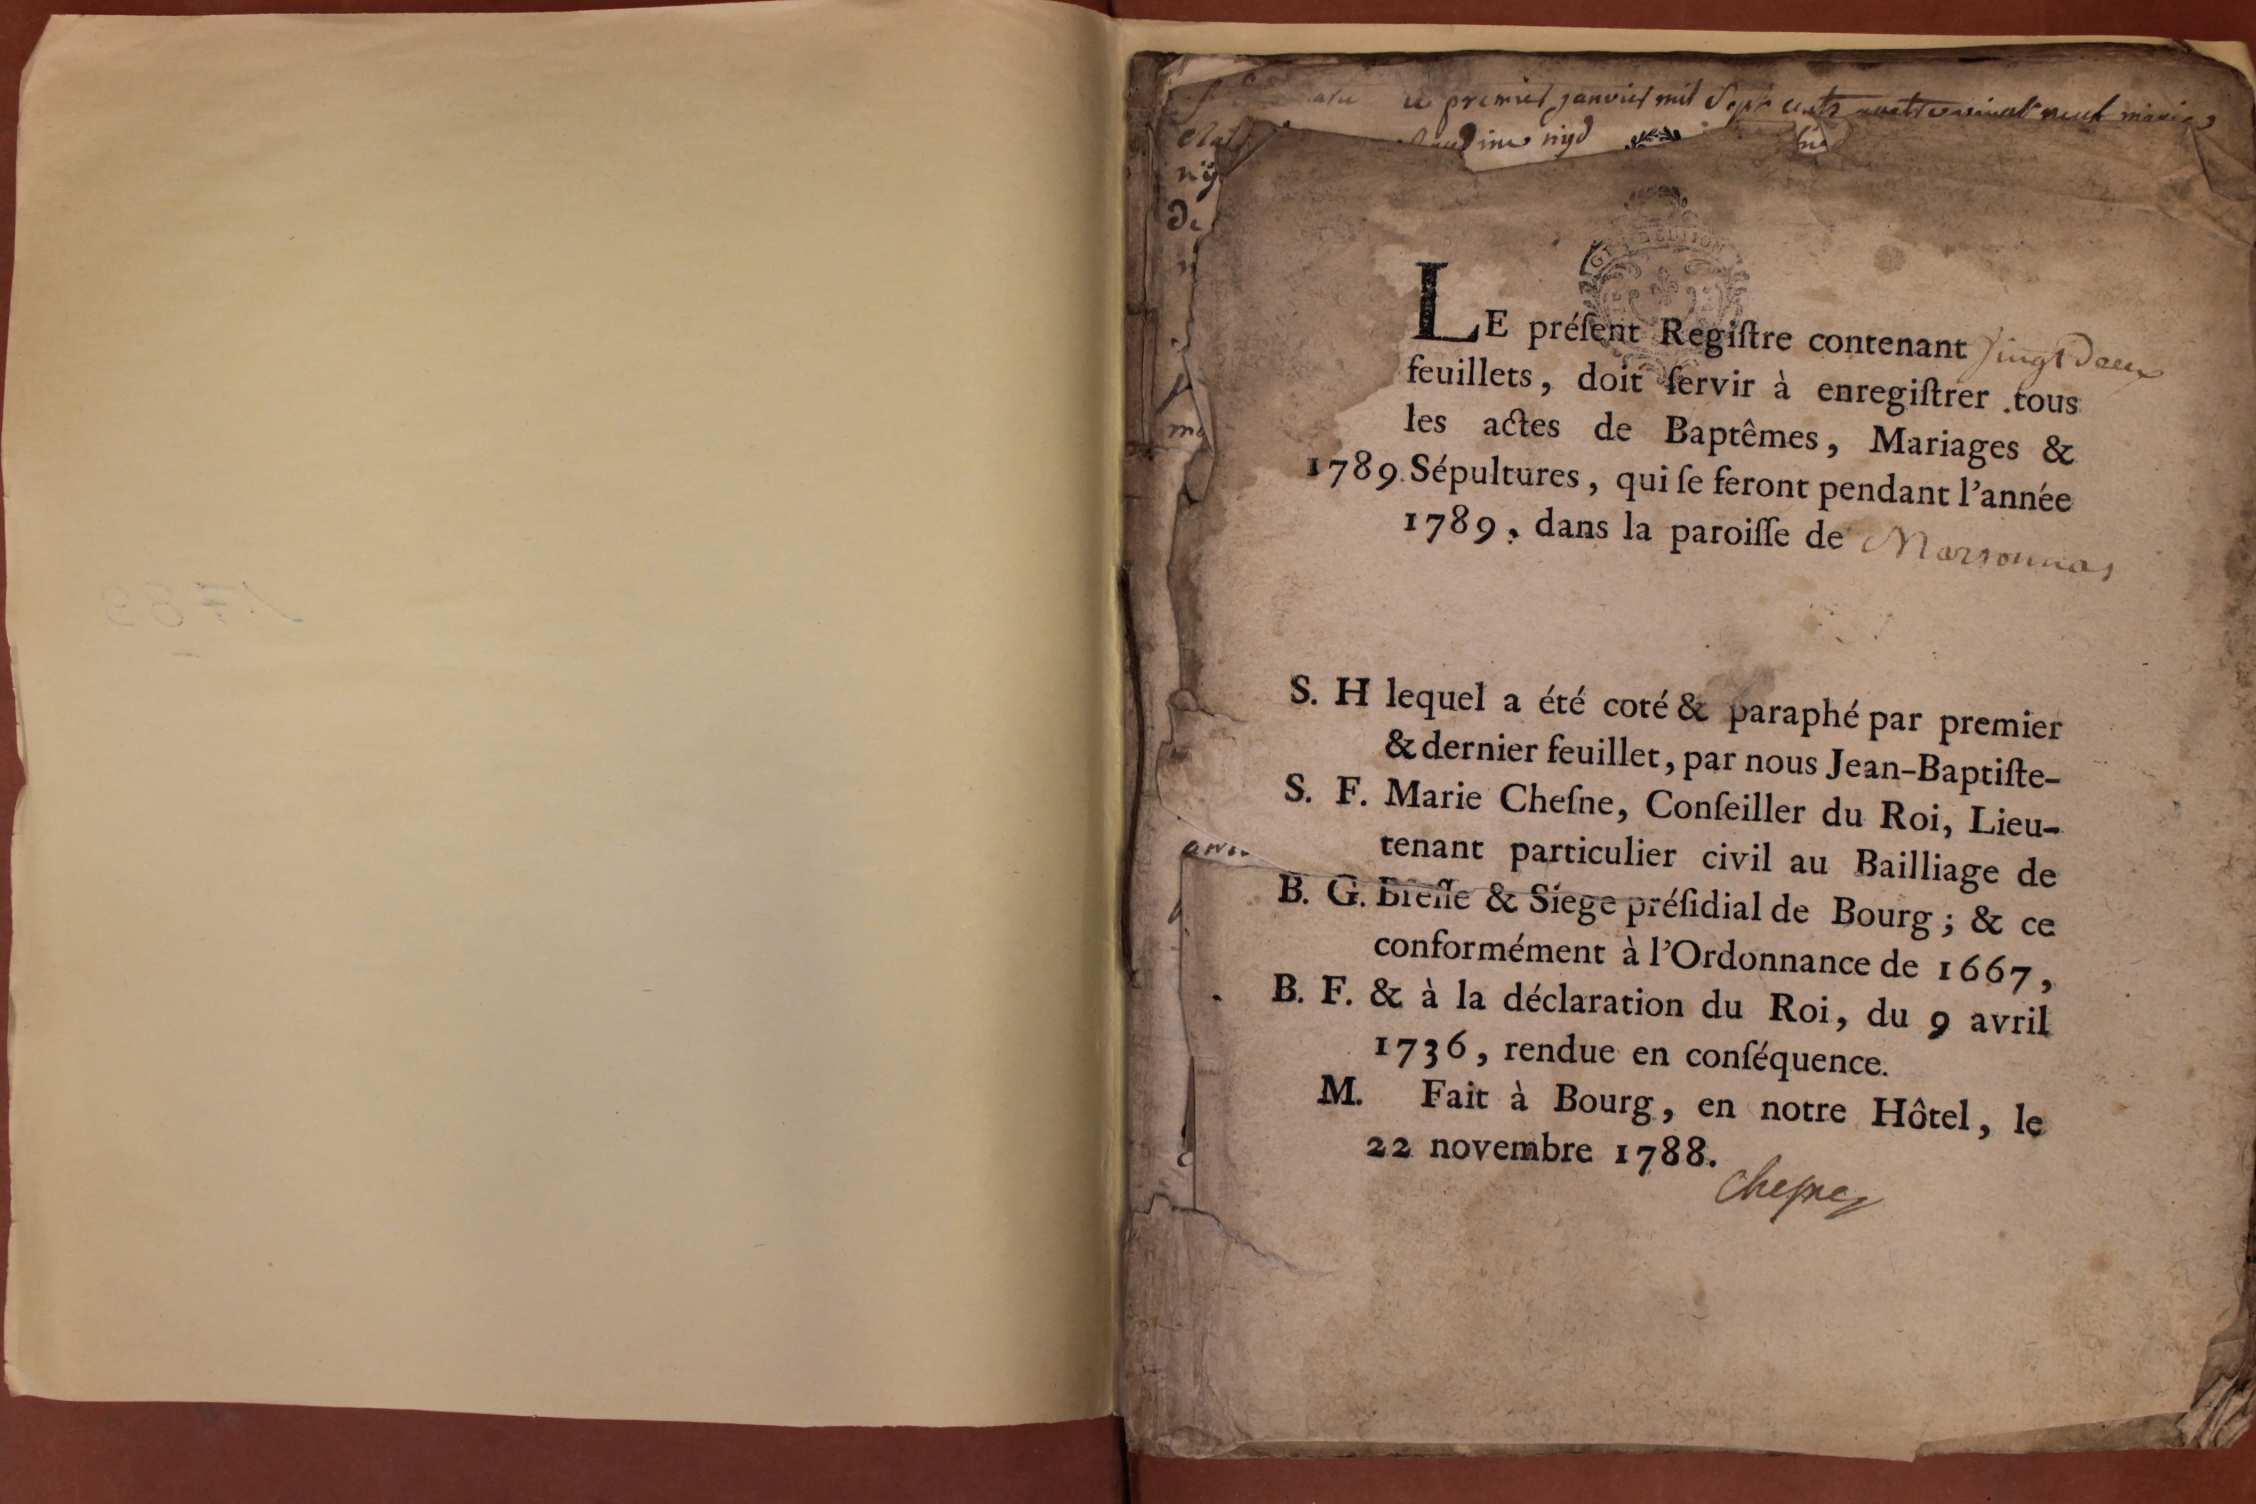 premier janvier mil Sept cents quattrevingt neuf
nijd
LE préſent Regiſtre contenant vingt deux
feuillets, doit ſervir à enregiſtrer tous
les actes de Baptêmes, Mariages &
1789. Sépultures, qui ſe feront pendant l'année
1789, dans la paroiſſe de Marsonnas
S. H lequel a été coté & paraphé par premier
& dernier feuillet, par nous Jean-Baptiſte-
S. F. Marie Cheſne, Conſeiller du Roi, Lieu-
tenant particulier civil au Bailliage de
B. G. Breſſe & Siege préſidial de Bourg ; & ce
conformément à l'Ordonnance de 1667,
B. F. & à la déclaration du Roi, du 9 avril
1736, rendue en conſéquence.
M. Fait à Bourg, en notre Hôtel, le
22 novembre 1788.
Chesne